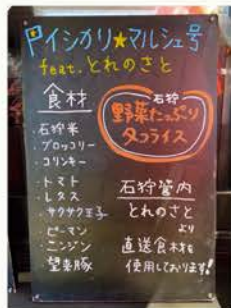 イシカリ★マルシェ号
feat.とれのさと
食材
・石狩米
・ブロッコリー
・コリンキー
・トマト
・レタス
・サクサク王子
・ピーマン
・ニンジン
望来豚
石狩
野菜たっぷり
タコライス
石狩管内
とれのさと
より
直送食材を
使用しております!